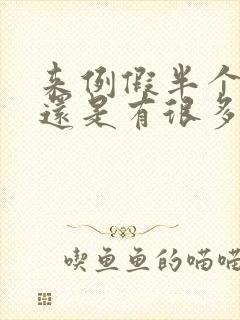 来例假半个
還是有很多
喫鱼鱼的喵喵